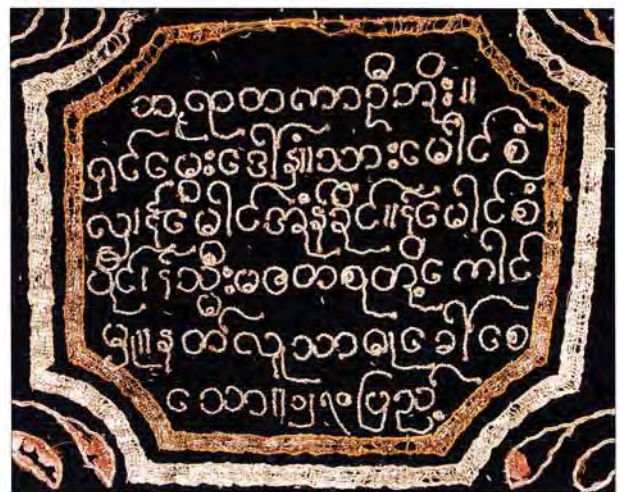 ဘုရာတကာဦဘိုး။
ရှင်မွေးဒေါ်နှံ။သားမောင်စံ
လှ၊န်မောင်အုံန်ခိုင်။န်မောင်စံ
ပိုင်၊န်သ္မီး တို့ကောင်
မှု။နတ်လူသာဓုခေါ်စေ
သော။၁၂၇၀ပြည့်